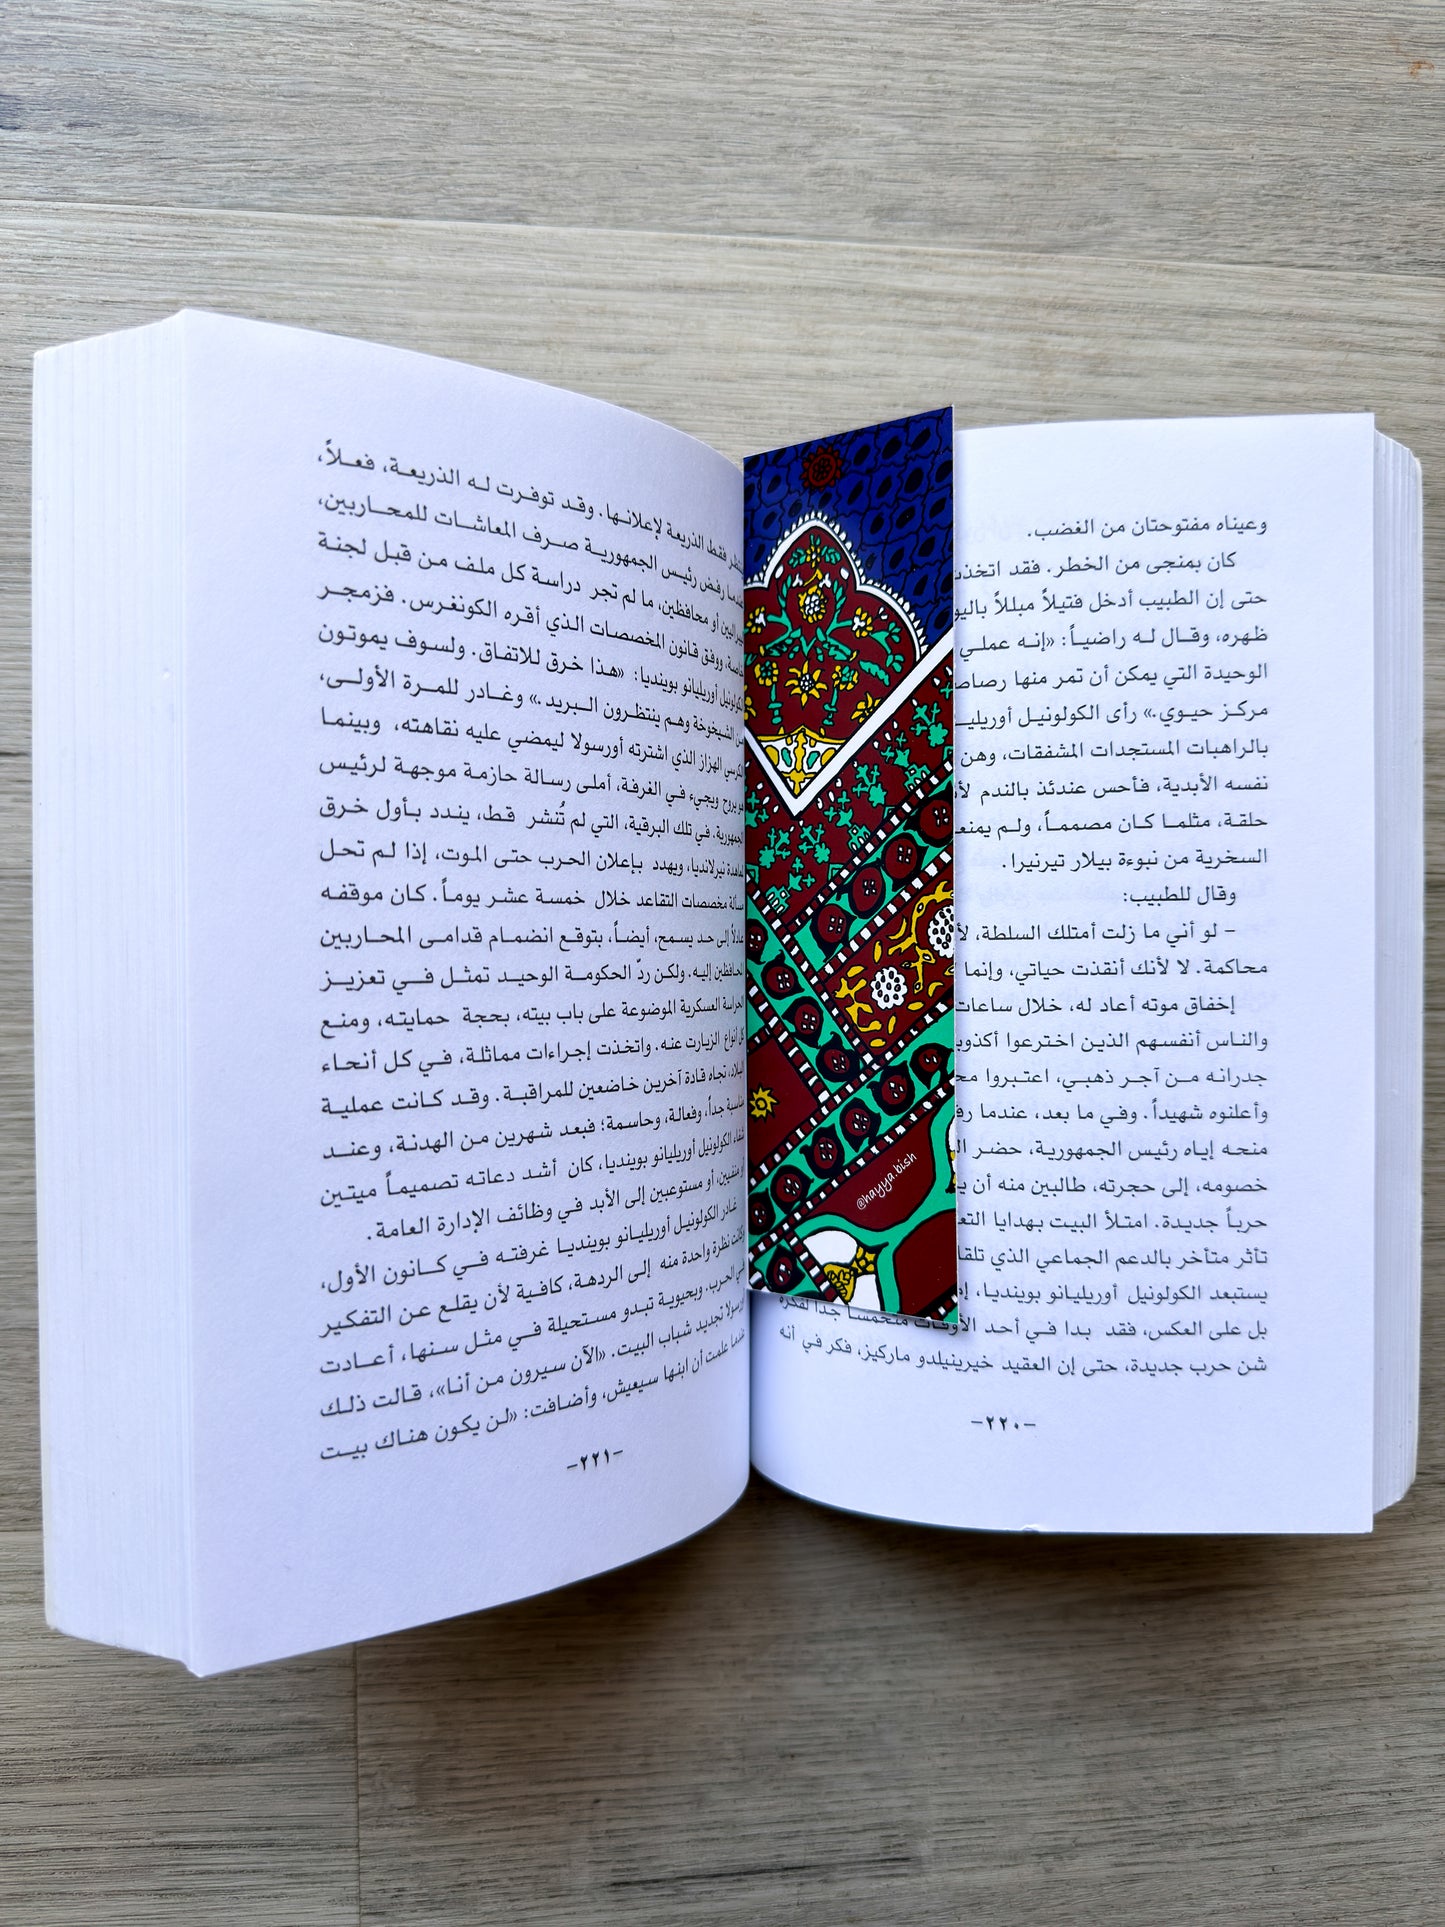 وعيناه مفتوحتان من الغضب.
كان بمنجى من الخطر. فقد اتخذت
حتى إن الطبيب أدخل فتيلاً مبللاً باليو
ظهره، وقـال لـه راضيـاً: «إنـه عملـي
الوحيدة التي يمكن أن تمر منها رصاصة
مركز حيـوي.» رأى الكولونيـل أوريليـ
بالراهبات المستجدات المشفقات، وهن
نفسه الأبدية، فأحس عندئذ بالندم لأ
حلقة، مثلمـا كـان مصممـاً، ولـم يمنعـ
السخرية من نبوءة بيلار تيرنيرا.
وقال للطبيب:
– لو أني ما زلت أمتلك السلطة، لأ
محاكمة. لا لأنك أنقذت حياتي، وإنما
إخفاق موته أعاد له، خلال ساعات
والناس أنفسهم الذيـن اخترعوا أكذوبـ
جدرانه مـن آجـر ذهبـي، اعتبروا
وأعلنوه شهيداً. وفي ما بعد، عندما رفـ
منحه إياه رئيس الجمهورية، حضـر
خصومه، إلى حجرته، طالبين منه أن
حرباً جديدة. امتلأ البيت بهدايا
تأثر متأخر بالدعم الجماعي الذي تلقا
يستبعد الكولونيل أوريليانو بوينديا،
بل على العكس، فقد بدا فـي أحـد الأوقات متحمساً جداً لفكرة
شن حرب جديدة، حتى إن العقيد خيرينيلدو ماركيز، فكر في أنه
–٢٢٠–
@hayya.bish
فقط الذريعة لإعلانـها. وقـد توفـرت لـه الذريعـة، فعـلاً،
عندمـا رفـض رئيـس الجمهوريـة صـرف المعاشـات للمحـاربين،
ليبراليين أو محافظين، ما لم تجر دراسة كل ملف مـن قبـل لجنـة
خاصـة، ووفق قانون المخصصات الـذي أقـره الكونغرس. فزمجـر
الكولونيل أوريليانو بوينديا: «هـذا خرق للاتفاق. ولسـوف يموتـون
من الشيخوخة وهـم ينتظـرون الـبريد.» وغـادر للمـرة الأولـى،
الكرسي الهزاز الذي اشترته أورسولا ليمضي عليه نقاهته، وبينمـا
هو يروح ويجيء في الغرفـة، أملى رسـالة حازمـة موجهـة لرئيـس
الجمهورية. في تلك البرقية، التي لم تُنشر قـط، ينـدد بـأول خـرق
لمعاهدة نيرلانديا، ويهدد بإعلان الحـرب حتـى المـوت، إذا لـم تحـل
مسـألة مخصصات التقاعد خلال خمسـة عشـر يومـاً. كـان موقفـه
عادلاً إلى حـد يسمح، أيضـاً، بتوقـع انضمـام قدامـى المحـاربين
المحافظين إليه. ولكن ردّ الحكومـة الوحيـد تمثـل فـي تعزيـز
الحراسة العسكرية الموضوعة على باب بيته، بحجـة حمايتـه، ومنـع
كل أنواع الزيارت عنـه. واتخذت إجراءات مماثلـة، فـي كـل أنحـاء
البلاد، تجاه قادة آخرين خاضعين للمراقبـة. وقـد كـانت عمليـة
مناسبة جداً، وفعالة، وحاسمة؛ فبعد شـهرين مـن الهدنـة، وعنـد
شفاء الكولونيل أوريليانو بوينديا، كـان أشـد دعاتـه تصميمـاً ميتـين
أو منفيين، أو مستوعبين إلى الأبد في وظائف الإدارة العامة.
غـادر الكولونيـل أوريليـانو بوينديـا غرفتـه فـي كـانون الأول،
وكانت نظرة واحدة منه إلى الردهة، كافيـة لأن يقلـع عـن التفكـير
في الحرب. وبحيويـة تبـدو مستحيلة فـي مثـل سـنها، أعـادت
أورسولا تجديد شباب البيـت. «الآن سيرون من أنا»، قـالت ذلـك
عندما علمت أن ابنهـا سـيعيش، وأضـافت: «لـن يكـون هنـاك بيـت
–٢٢١–